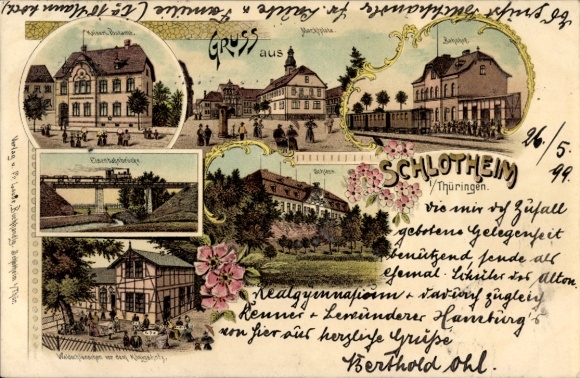 Kaiserl. Postamt.
GRUSS
aus
Marktplatz.
Bahnhof.
Eisenbahnbrücke.
Schloss.
SCHLOTHEIM
i/Thüringen.
Waldschlösschen vor dem
26/5
99.
Die mir dch Zufall
gebotene Gelegenheit
benützend sende als
ehemal. Schüler des Alton.
Realgymnasium + dadurch zugleich
Kenner + Bewunderer Hamburg's
von hier aus herzliche Grüße
Berthold Ohl.